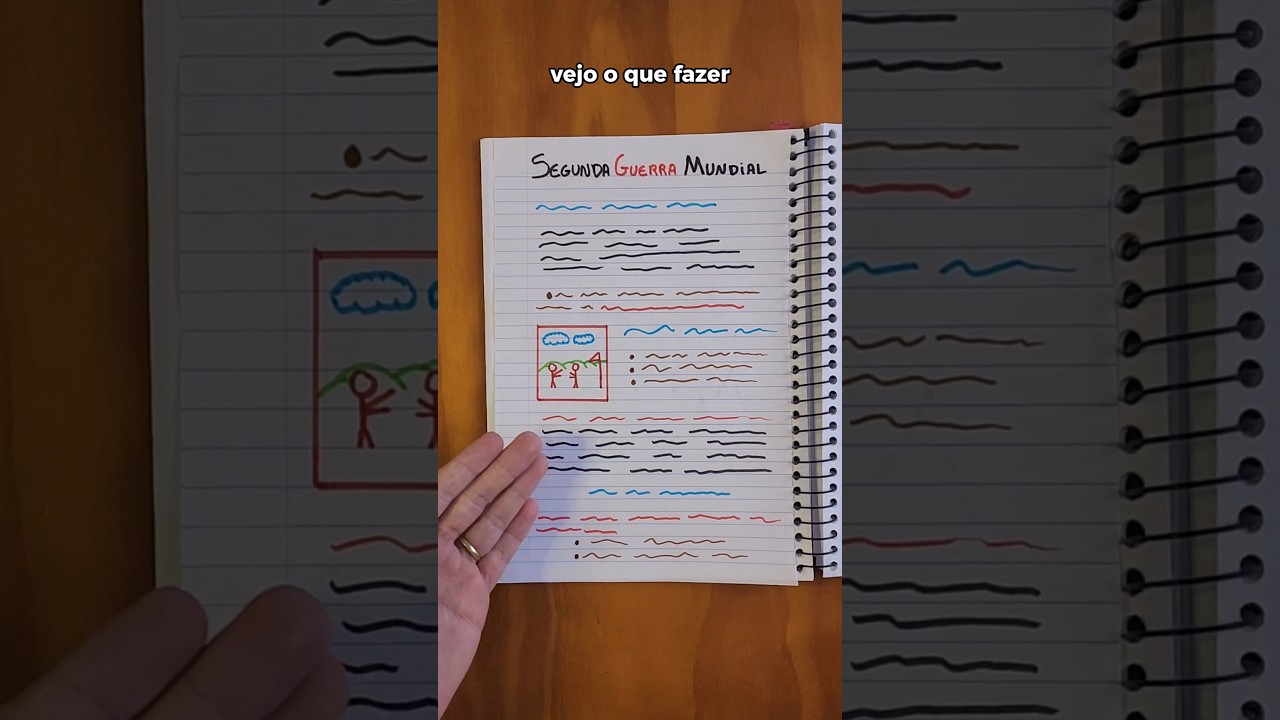 vejo o que fazer
SEGUNDA GUERRA MUNDiAL